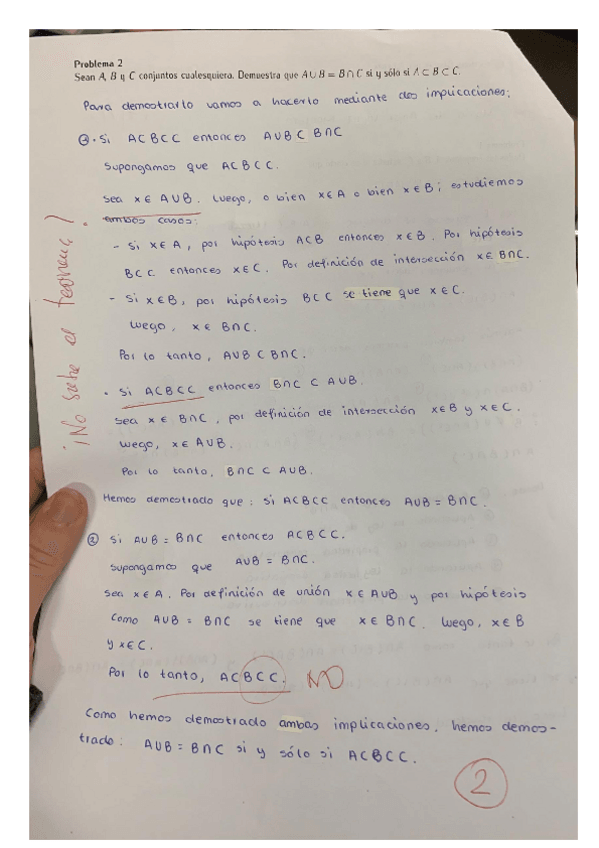 Problema 2
Sean A, B y C conjuntos cualesquiera. Demuestra que A∪B = B∩C si y sólo si A ⊂ B ⊂ C.
Para demostrarlo vamos a hacerlo mediante dos implicaciones:
· Si A⊂B⊂C entonces A∪B ⊂ B∩C
Supongamos que A⊂B⊂C.
Sea x ∈ A∪B. Luego, o bien x∈A o bien x∈B; estudiemos
ambos casos:
- Si x∈A, por hipótesis A⊂B entonces x∈B. Por hipótesis
B⊂C entonces x∈C. Por definición de intersección x∈ B∩C.
- Si x∈B, por hipótesis B⊂C se tiene que x∈C.
Luego, x∈ B∩C.
Por lo tanto, A∪B ⊂ B∩C.
· Si A⊂B⊂C entonces B∩C ⊂ A∪B.
Sea x ∈ B∩C, por definición de intersección x∈B y x∈C.
Luego, x∈ A∪B.
Por lo tanto, B∩C ⊂ A∪B.
Hemos demostrado que: si A⊂B⊂C entonces A∪B = B∩C.
② Si A∪B = B∩C entonces A⊂B⊂C.
Supongamos que A∪B = B∩C.
Sea x∈A. Por definición de unión x∈A∪B y por hipótesis
como A∪B = B∩C se tiene que x∈ B∩C. Luego, x∈B
y x∈C.
Por lo tanto, A⊂B⊂C. NO
Como hemos demostrado ambas implicaciones, hemos demos-
trado: A∪B = B∩C si y sólo si A⊂B⊂C.
2
¡No sabe el teorema!